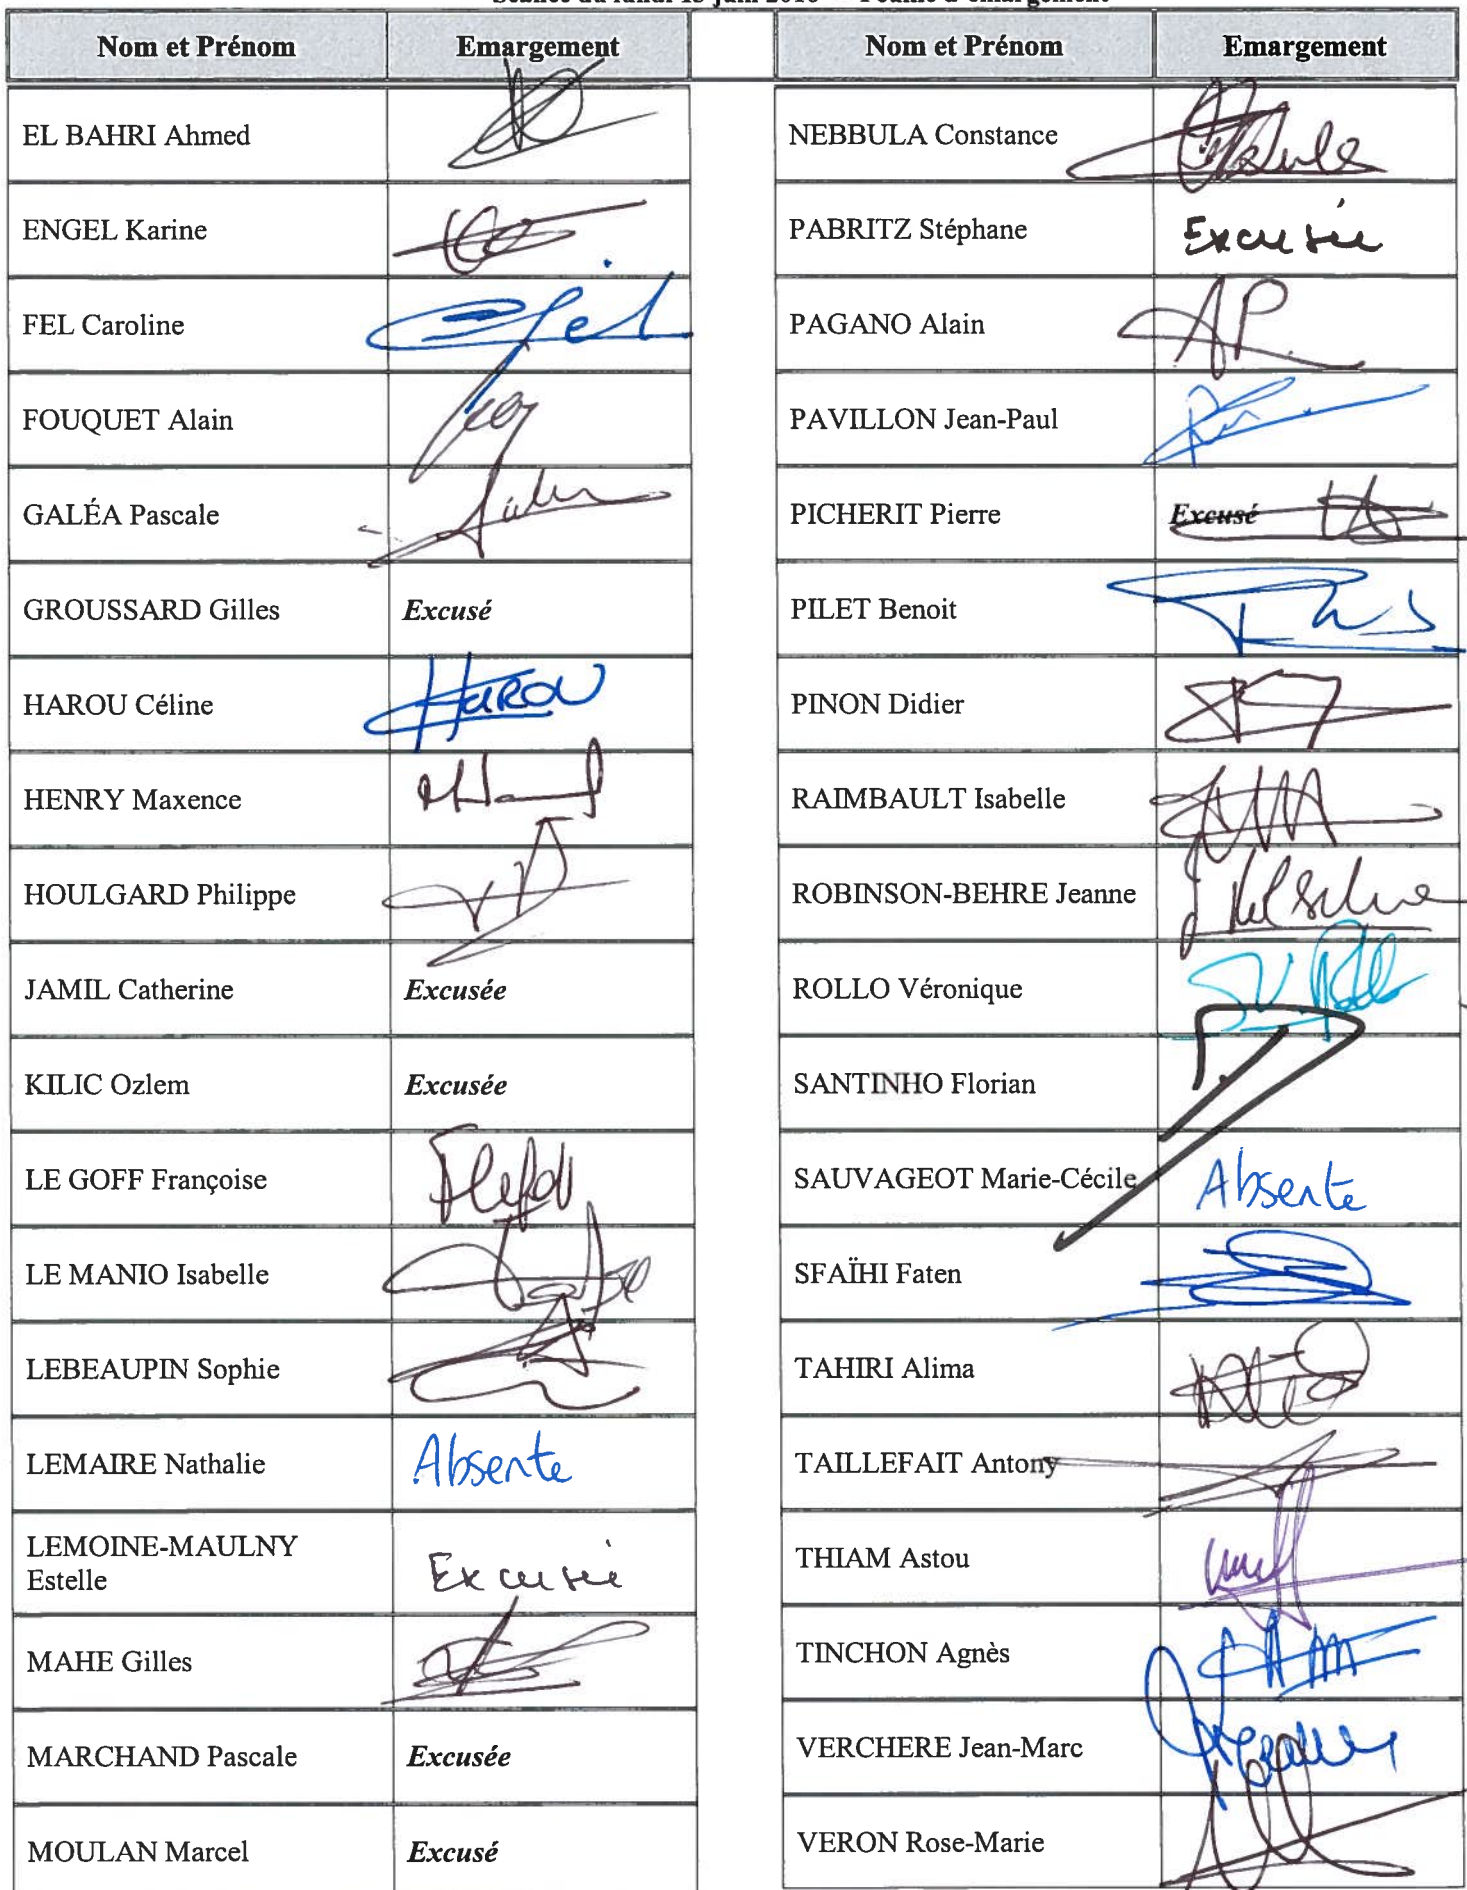 Séance du lundi 18 juin 2018 - Feuille d'émargement
Nom et Prénom Emargement
EL BAHRI Ahmed
ENGEL Karine
FEL Caroline
FOUQUET Alain
GALÉA Pascale
GROUSSARD Gilles Excusé
HAROU Céline HAROU
HENRY Maxence
HOULGARD Philippe
JAMIL Catherine Excusée
KILIC Ozlem Excusée
LE GOFF Françoise
LE MANIO Isabelle
LEBEAUPIN Sophie
LEMAIRE Nathalie Absente
LEMOINE-MAULNY
Estelle Excusée
MAHE Gilles
MARCHAND Pascale Excusée
MOULAN Marcel Excusé
Nom et Prénom Emargement
NEBBULA Constance
PABRITZ Stéphane Excusée
PAGANO Alain AP
PAVILLON Jean-Paul
PICHERIT Pierre Excusé
PILET Benoit
PINON Didier
RAIMBAULT Isabelle
ROBINSON-BEHRE Jeanne
ROLLO Véronique
SANTINHO Florian
SAUVAGEOT Marie-Cécile Absente
SFAÏHI Faten
TAHIRI Alima
TAILLEFAIT Antony
THIAM Astou
TINCHON Agnès
VERCHERE Jean-Marc
VERON Rose-Marie